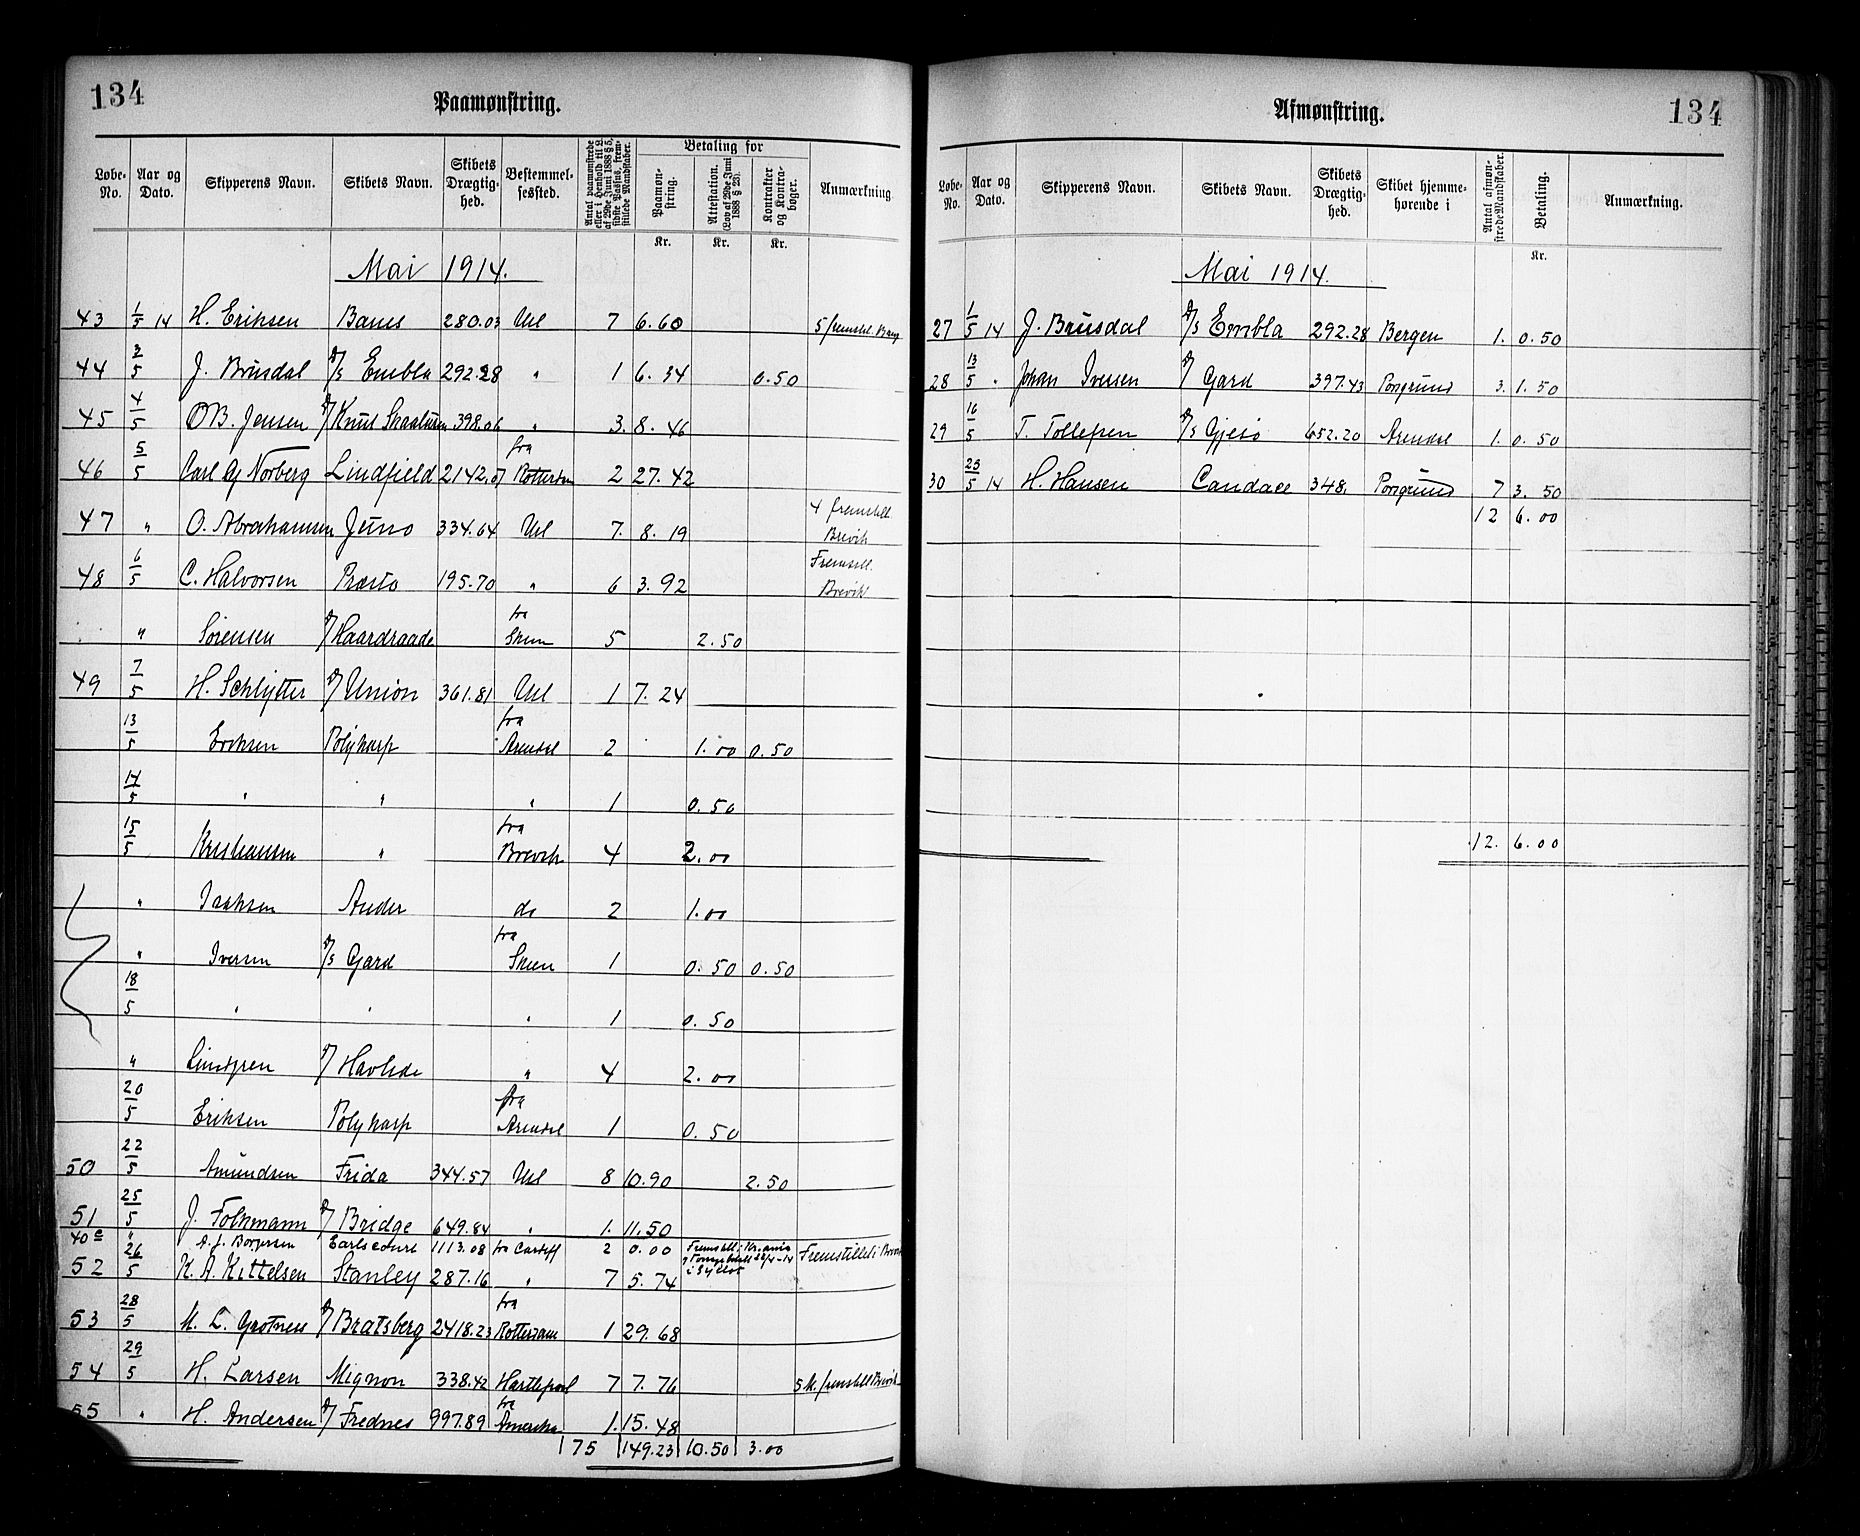 134
Paamønstring.
Løbe-No. Aar og Dato. Skipperens Navn. Skibets Navn. Skibets Drægtighed. Bestemmelsessted. Antal paamønstrede eller i Henhold til L. af 29de Juni 1888 § 5, sidste Passus, fremstillede Mandskaber. Betaling for Paamønstring. Attestation. (Lov af 29de Juni 1888 § 23). Kontrakter og Kontrabøger. Anmærkning.
Kr. Kr. Kr.
Mai 1914.
43 1/5 14 H. Eriksen Banes 280.03 Ubl 7 6.60 5 fremstil.
44 3/5 J. Brusdal D/S Embla 292.28 " 1 6.34 0.50
45 4/5 O B. Jensen D/ Knut Skaaluren 398.06 " 3. 8.46
46 5/5 Carl Aj Norberg Lindfield 2142.07 fra Rotterdam 2 27.42
47 " O. Abrahamsen Juno 334.64 Ubl 7. 8.19 4 fremstill. Brevik
48 6/5 C. Halvorsen Præsto 195.70 " 6 3.92 Fremstill. Brevik
" Sørensen D/ Haardraade fra Skien 5 2.50
49 7/5 H. Schlytter D/ Union 361.81 Ubl 1 7.24
13/5 Eriksen Polykarp fra Arendal 2 1.00 0.50
14/5 " " " 1 0.50
15/5 Kristiansen " fra Brevik 4 2.00
" Isaksen Ander do 2 1.00
" Iversen D/S Gard fra Skien 1 0.50 0.50
18/5 " " " 1 0.50
" Lindgren D/ Havlide " 4 2.00
20/5 Eriksen Polykarp fra Arendal 1 0.50
50 22/5 Amundsen Frida 344.57 Ubl 8 10.90 2.50
51 25/5 J. Folkmann D/ Bridge 649.84 " 1. 11.50
40 e " A. J. Borgersen Earlscourt 1113.08 fra Cardiff 2 0.00 Fremstill. i Kr.ania Fremstillet i Brevik
52 26/5 K. A. Kittelsen Stanley 287.16 " 7 5.74
53 28/5 M. L. Grotness D/ Bratsberg 2418.23 fra Rotterdam 1 29.68
54 29/5 H. Larsen Mignon 338.42 Hartlepool 7 7.76 5 M. fremstill Brevik
55 " H. Andersen D/ Frednes 997.89 fra Amerika 1. 15.48
75 149.23 10.50 3.00
Afmønstring.
134
Løbe-No. Aar og Dato. Skipperens Navn. Skibets Navn. Skibets Drægtighed. Skibet hjemmehørende i Antal afmønstrede Mandskaber. Betaling. Anmærkning.
Kr.
Mai 1914.
27 1/5 14 J. Brusdal D/S Embla 292.28 Bergen 1. 0.50
28 13/5 " Johan Iversen D/ Gard 397.43 Porsgrund 3. 1.50
29 16/5 T. Tollefsen D/S Gjesø 652.20 Arendal 1. 0.50
30 25/5 14 H. Hansen Candace 348. Porsgrund 7 3.50
12 6.00
12. 6.00